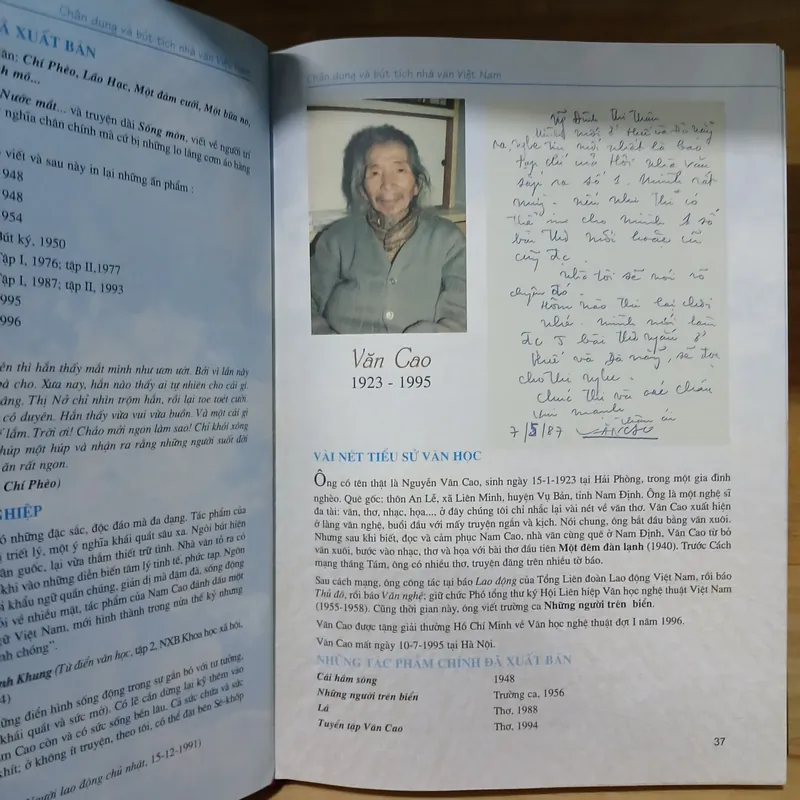 Chân dung và bút tích nhà văn Việt Nam
Ã XUẤT BẢN
ăn: Chí Phèo, Lão Hạc, Một đám cưới, Một bữa no,
h mồ...
Nước mắt... và truyện dài Sống mòn, viết về người trí
nghĩa chân chính mà cứ bị những lo lắng cơm áo hàng
viết và sau này in lại những ấn phẩm :
948
948
1954
Bút ký, 1950
Tập I, 1976; tập II,1977
Tập I, 1987; tập II, 1993
995
996
ên thì hắn thấy mắt mình như ươn ướt. Bởi vì lần này
bà cho. Xưa nay, hắn nào thấy ai tự nhiên cho cái gì.
ằng. Thị Nở chỉ nhìn trộm hắn, rồi lại toe toét cười.
có duyên. Hắn thấy vừa vui vừa buồn. Và một cái gì
lắm. Trời ơi! Cháo mới ngon làm sao! Chỉ khói xông
húp một húp và nhận ra rằng những người suốt đời
ăn rất ngon.
Chí Phèo)
GHIỆP
ó những đặc sắc, độc đáo mà đa dạng. Tác phẩm của
triết lý, một ý nghĩa khái quát sâu xa. Ngòi bút hiện
ăn guốc, lại vừa thấm thiết trữ tình. Nhà văn tỏ ra có
khi vào những diễn biến tâm lý tinh tế, phức tạp. Ngôn
khẩu ngữ quần chúng, giản dị mà đậm đà, sống động
ổi về nhiều mặt, tác phẩm của Nam Cao đánh dấu một
gữ Việt Nam, mới hình thành trong nửa thế kỷ nhưng
nh chóng”.
nh Khung (Từ điển văn học, tập 2, NXB Khoa học xã hội,
4)
ững điển hình sống động trong sự gắn bó với tư tưởng,
khái quát và sức mở). Có lẽ cần dừng lại kỹ thêm vào
m Cao còn và có sức sống bền lâu. Cả sức chứa và sức
khít; ở không ít truyện, theo tôi, có thể đặt bên Sê-khốp
Người lao động chủ nhật, 15-12-1991)
Chân dung và bút tích nhà văn Việt Nam
Mình mới ở Huế và Đà nẵng
ra, nghe tin mới nhất là báo
tạp chí của Hội nhà văn
sắp ra số 1. Mình rất
mừng. nếu như Thi có
thể in cho mình 1 số
bài thơ mới hoặc cũ
cũng đc.
Nhà tôi sẽ nói rõ
chuyện đó.
Hôm nào Thi lại chơi
nhé. mình mới làm
đc 5 bài thơ ngắn ở
Huế và Đà nẵng, sẽ đọc
cho Thi nghe.
Chúc Thi và các cháu
mạnh
Thân ái
7/5/87 VĂN CAO
Văn Cao
1923 - 1995
VÀI NÉT TIỂU SỬ VĂN HỌC
Ông có tên thật là Nguyễn Văn Cao, sinh ngày 15-1-1923 tại Hải Phòng, trong một gia đình
nghèo. Quê gốc: thôn An Lễ, xã Liên Minh, huyện Vụ Bản, tỉnh Nam Định. Ông là một nghệ sĩ
đa tài: văn, thơ, nhạc, họa...., ở đây chúng tôi chỉ nhắc lại vài nét về văn thơ. Văn Cao xuất hiện
ở làng văn nghệ, buổi đầu với mấy truyện ngắn và kịch. Nói chung, ông bắt đầu bằng văn xuôi.
Nhưng sau khi biết, đọc và cảm phục Nam Cao, nhà văn cùng quê ở Nam Định, Văn Cao từ bỏ
văn xuôi, bước vào nhạc, thơ và họa với bài thơ đầu tiên Một đêm đàn lạnh (1940). Trước Cách
mạng tháng Tám, ông có nhiều thơ, truyện đăng trên nhiều tờ báo.
Sau cách mạng, ông công tác tại báo Lao động của Tổng Liên đoàn Lao động Việt Nam, rồi báo
Thủ đô, rồi báo Văn nghệ; giữ chức Phó tổng thư ký Hội Liên hiệp Văn học nghệ thuật Việt Nam
(1955-1958). Cũng thời gian này, ông viết trường ca Những người trên biển.
Văn Cao được tặng giải thưởng Hồ Chí Minh về Văn học nghệ thuật đợt I năm 1996.
Văn Cao mất ngày 10-7-1995 tại Hà Nội.
NHỮNG TÁC PHẨM CHÍNH ĐÃ XUẤT BẢN
Cái hầm sông 1948
Những người trên biển Trường ca, 1956
Lá Thơ, 1988
Tuyển tập Văn Cao Thơ, 1994
37